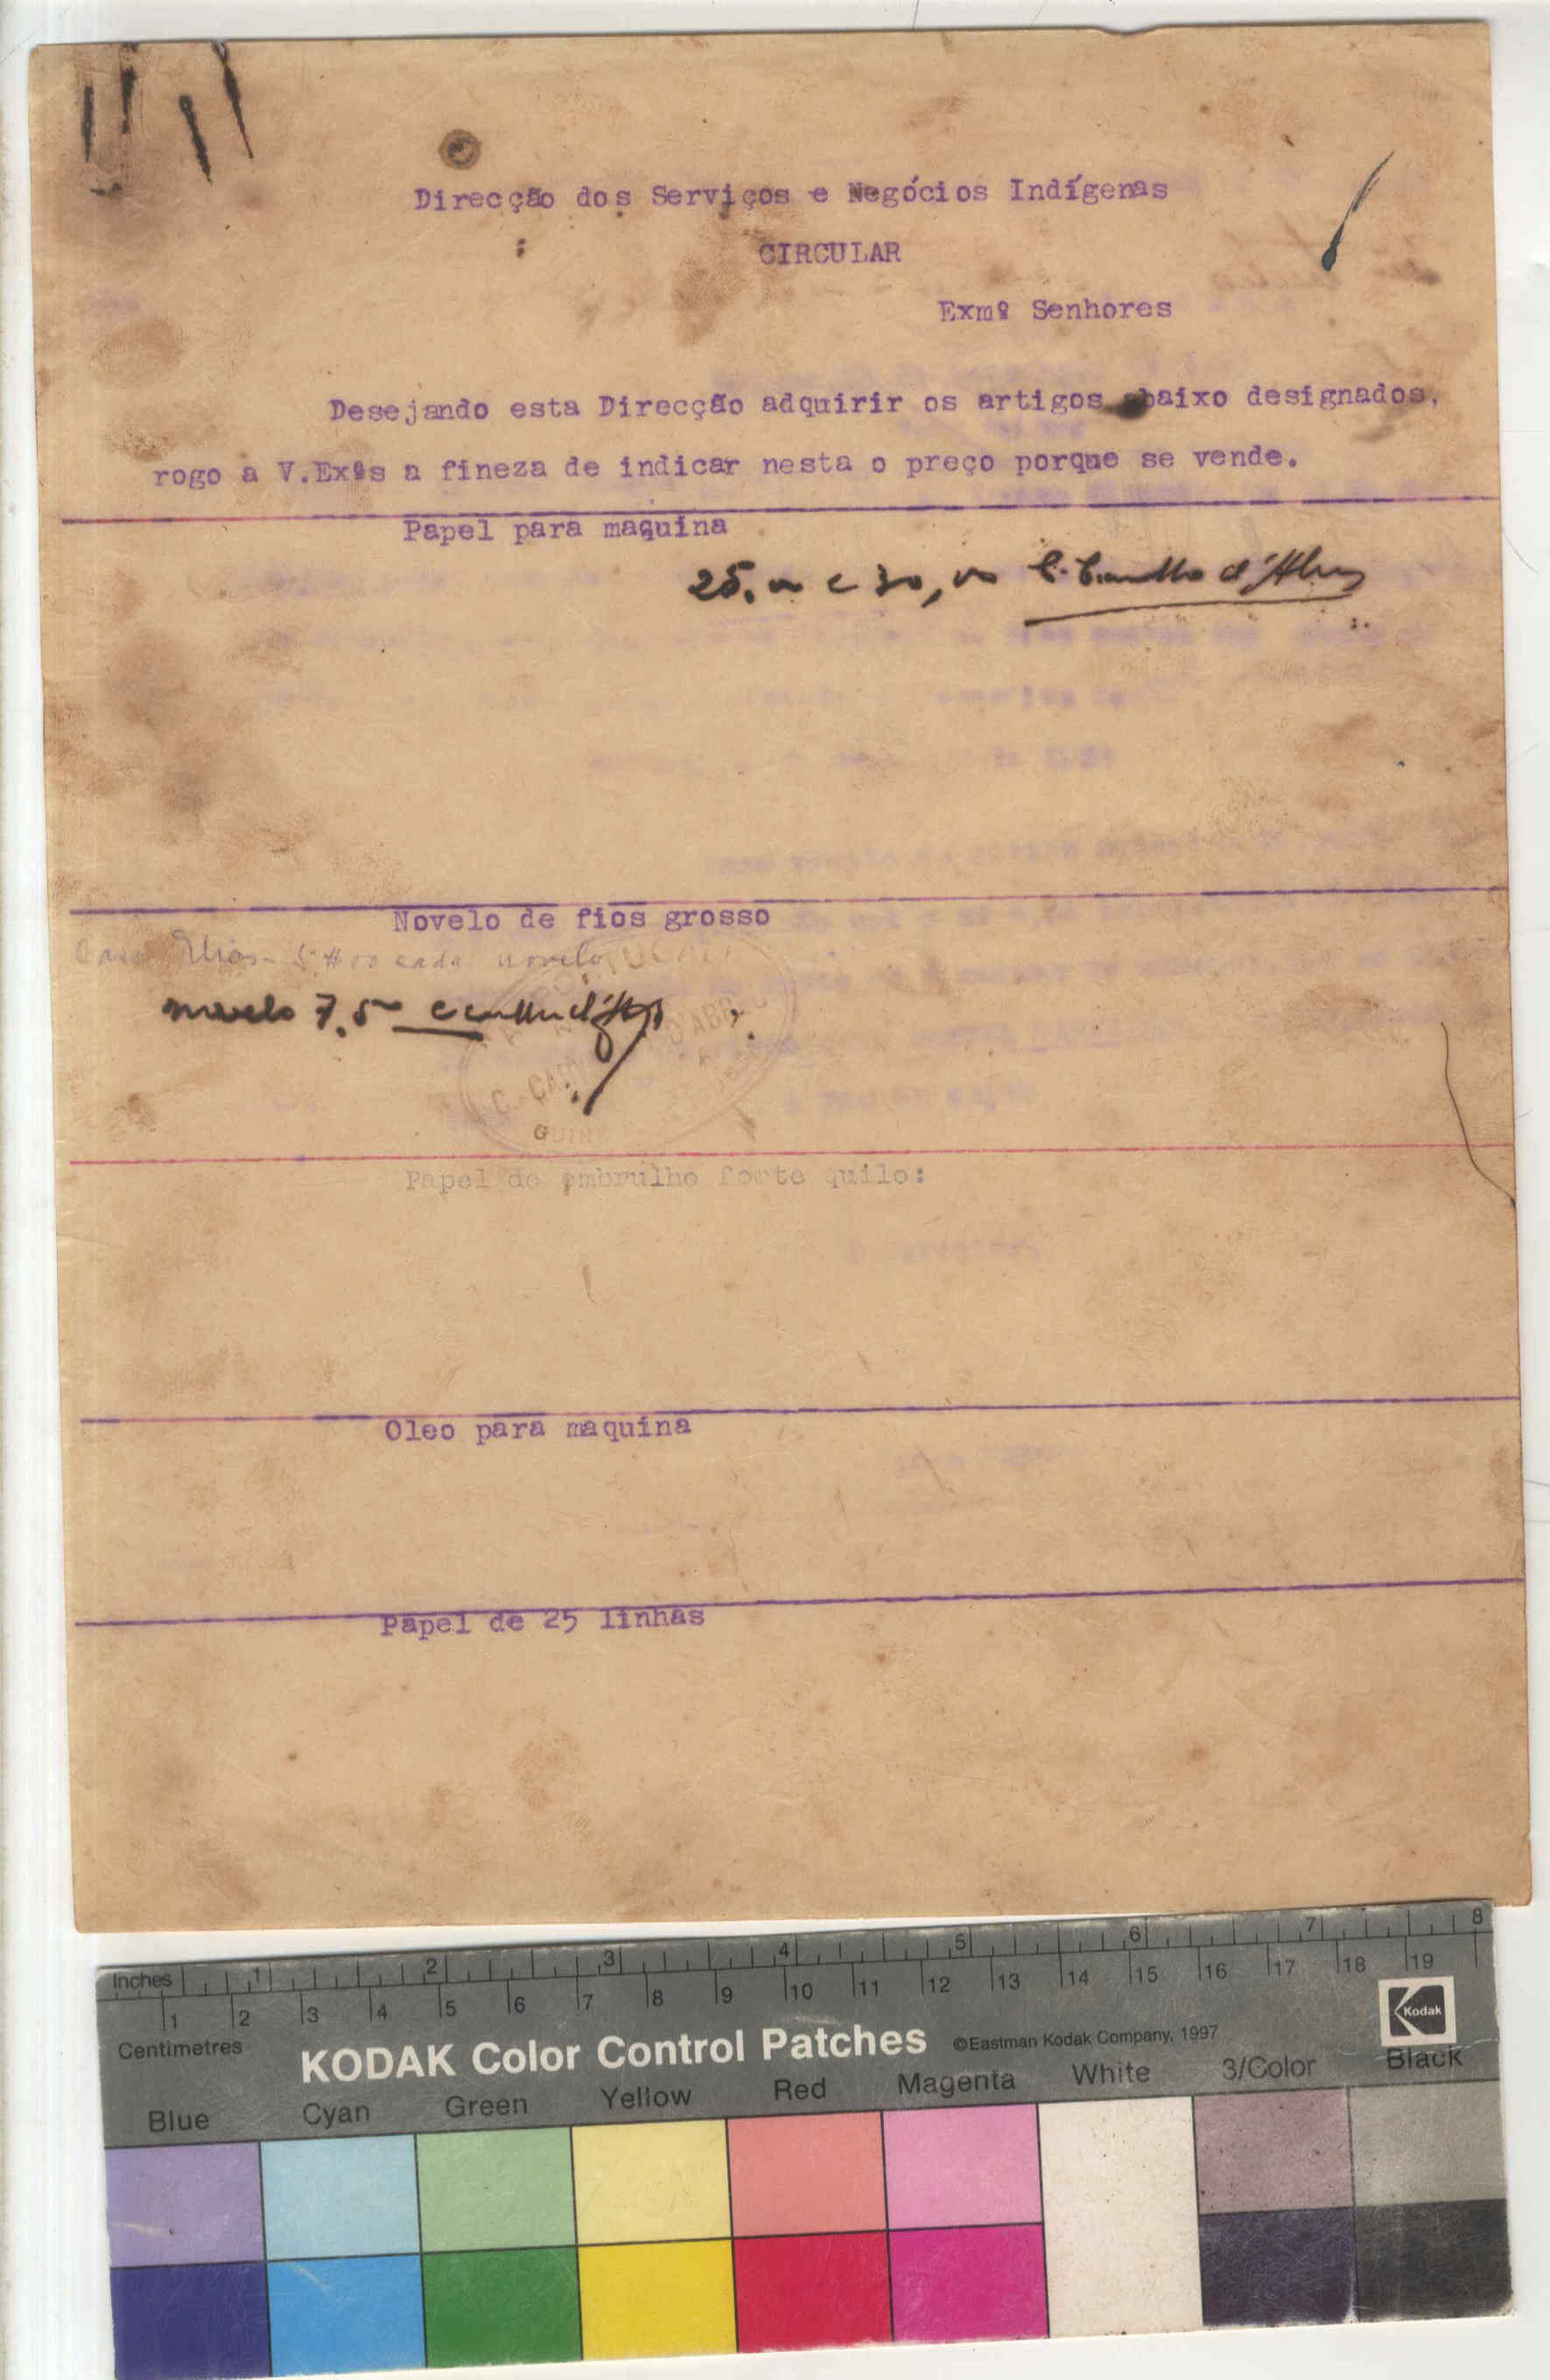 Direcção dos Serviços e Negócios Indígenas
CIRCULAR
Exmº Senhores
Desejando esta Direcção adquirir os artigos abaixo designados,
rogo a V.Exªs a fineza de indicar nesta o preço porque se vende.
Papel para maquina
25, e 30, C. Carvalho d'
Novelo de fios grosso
Casa Elias - 5$00 cada novelo
novelo 7.50
Papel de embrulho forte quilo:
Oleo para maquina
Papel de 25 linhas
Inches 1 2 3 4 5 6 7 8
1 2 3 4 5 6 7 8 9 10 11 12 13 14 15 16 17 18 19
Centimetres
KODAK Color Control Patches ©Eastman Kodak Company, 1997 Kodak
Blue Cyan Green Yellow Red Magenta White 3/Color Black